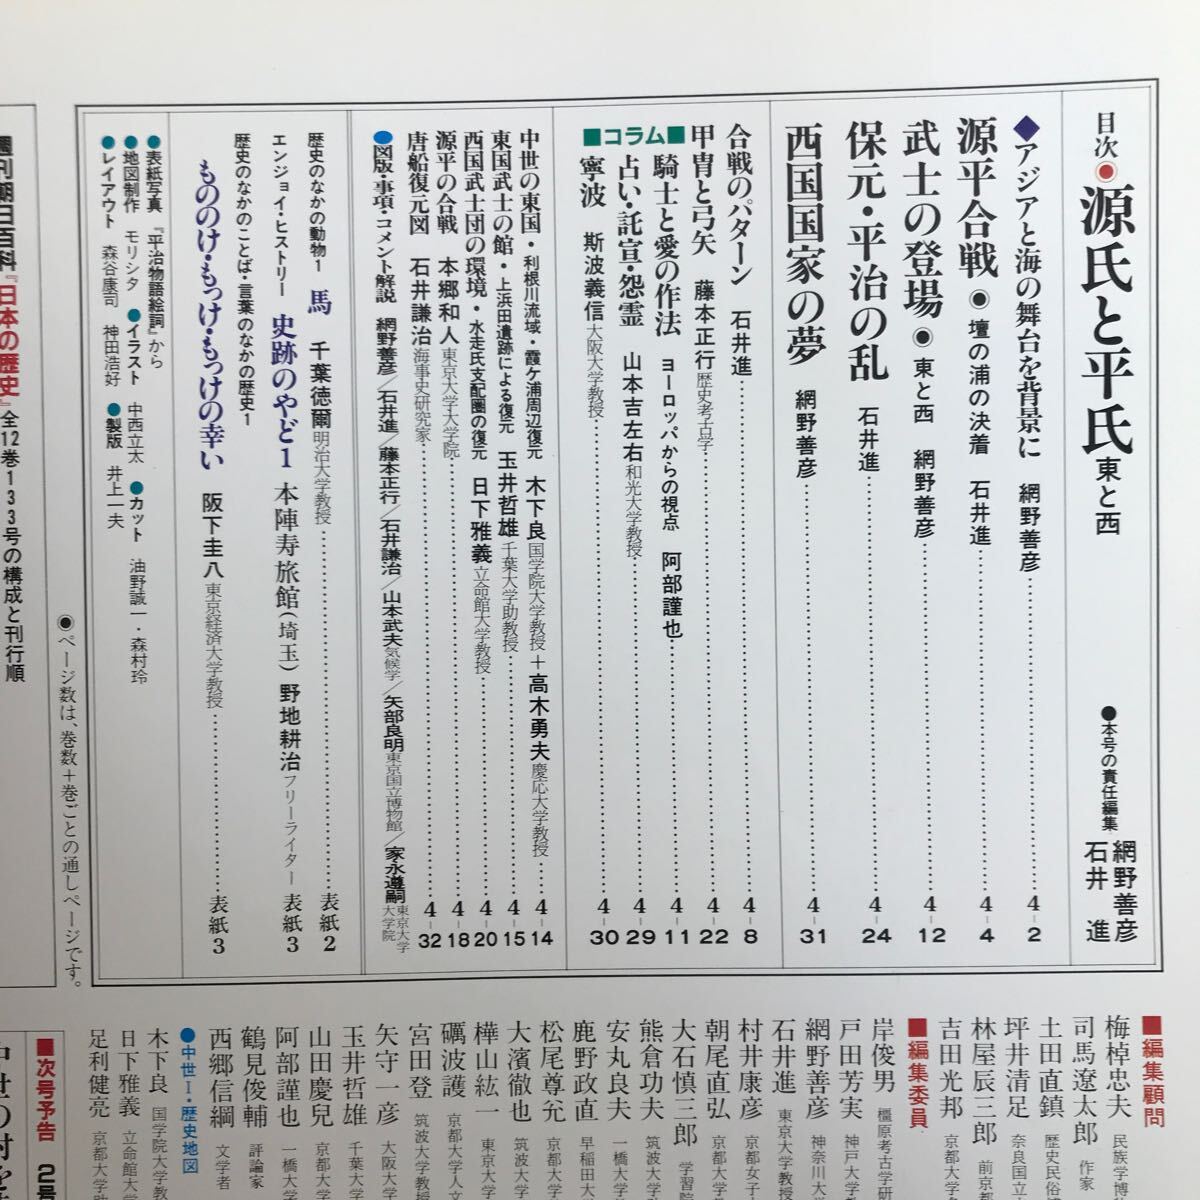 目次●源氏と平氏 東と西
●本号の責任編集 網野善彦 石井 進
◆アジアと海の舞台を背景に 網野善彦 4-2
源平合戦●壇の浦の決着 石井進 4-4
武士の登場●東と西 網野善彦 4-12
保元・平治の乱 石井進 4-24
西国国家の夢 網野善彦 4-31
合戦のパターン 石井進 4-8
甲冑と弓矢 藤本正行 歴史考古学 4-22
■コラム■
騎士と愛の作法 ヨーロッパからの視点 阿部謹也 4-11
占い・託宣・怨霊 山本吉左右 和光大学教授 4-29
寧波 斯波義信 大阪大学教授 4-30
中世の東国・利根川流域・霞ケ浦周辺復元 木下良 国学院大学教授+高木勇夫 慶応大学教授 4-14
東国武士の館・上浜田遺跡による復元 玉井哲雄 千葉大学助教授 4-15
西国武士団の環境・水走氏支配圏の復元 日下雅義 立命館大学教授 4-20
源平の合戦 本郷和人 東京大学大学院 4-18
唐船復元図 石井謙治 海事史研究家 4-32
●図版・事項・コメント解説 網野善彦/石井進/藤本正行/石井謙治/山本武夫 気候学/矢部良明 東京国立博物館/家永遵嗣 東京大学大学院
歴史のなかの動物1 馬 千葉徳爾 明治大学教授 表紙2
エンジョイ・ヒストリー 史跡のやど1 本陣寿旅館(埼玉) 野地耕治 フリーライター 表紙3
歴史のなかのことば・言葉のなかの歴史1
もののけ・もっけ・もっけの幸い 阪下圭八 東京経済大学教授 表紙3
●表紙写真 『平治物語絵詞』から
●地図制作 モリシタ ●イラスト 中西立太 ●カット 油野誠一・森村玲
●レイアウト 森谷康司 神田浩好 ●製版 井上一夫
●ページ数は、巻数+巻ごとの通しページです。
週刊朝日百科『日本の歴史』全12巻133号の構成と刊行順
■編集顧問
梅棹忠夫 民族学博
司馬遼太郎 作家
土田直鎮 歴史民俗博
坪井清足 奈良国立
林屋辰三郎 前京都
吉田光邦 京都大学
■編集委員
岸俊男 橿原考古学研
戸田芳実 神戸大学
網野善彦 神奈川大学
石井進 東京大学教授
村井康彦 京都女子大
朝尾直弘 京都大学
大石慎三郎 学習院
熊倉功夫 筑波大学
安丸良夫 一橋大学
鹿野政直 早稲田大
松尾尊兊 京都大学
大濱徹也 筑波大学
樺山紘一 東京大学
礪波護 京都大学人文
宮田登 筑波大学教授
矢守一彦 大阪大学
玉井哲雄 千葉大学
山田慶兒 京都大学
阿部謹也 一橋大学
鶴見俊輔 評論家
西郷信綱 文学者
●中世Ⅰ・歴史地図
木下良 国学院大学教
日下雅義 立命館大学
足利健亮 京都大学助
■次号予告 2号
中世の村を